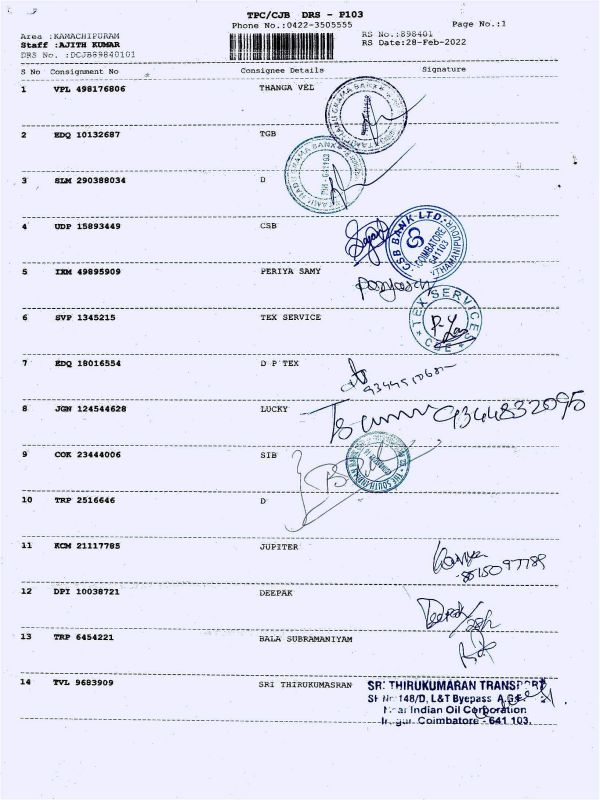 TPC/CJB DRS - P103
Phone No.:0422-3505555 Page No.:1
Area :KAMACHIPURAM RS No.:898401
Staff :AJITH KUMAR RS Date:28-Feb-2022
DRS No. :DCJB89840101
S No Consignment No Consignee Details Signature
1 VPL 498176806 THANGA VEL
2 EDQ 10132687 TGB
3 SLM 290388034 D
4 UDP 15893449 CSB
CSB BANK LTD.
COIMBATORE
641103
5 IXM 49895909 PERIYA SAMY
6 SVP 1345215 TEX SERVICE
TEX SERVICES
CBE
7 EDQ 18016554 D P TEX
8 JGN 124544628 LUCKY
9 COK 23444006 SIB
10 TRP 2516646 D
11 KCM 21117785 JUPITER
12 DPI 10038721 DEEPAK
Deepak
13 TRP 6454221 BALA SUBRAMANIYAM
14 TVL 9683909 SRI THIRUKUMASRAN
SRI THIRUKUMARAN TRANSPORT
148/D, L&T Byepass
Indian Oil Corporation
Coimbatore - 641 103.